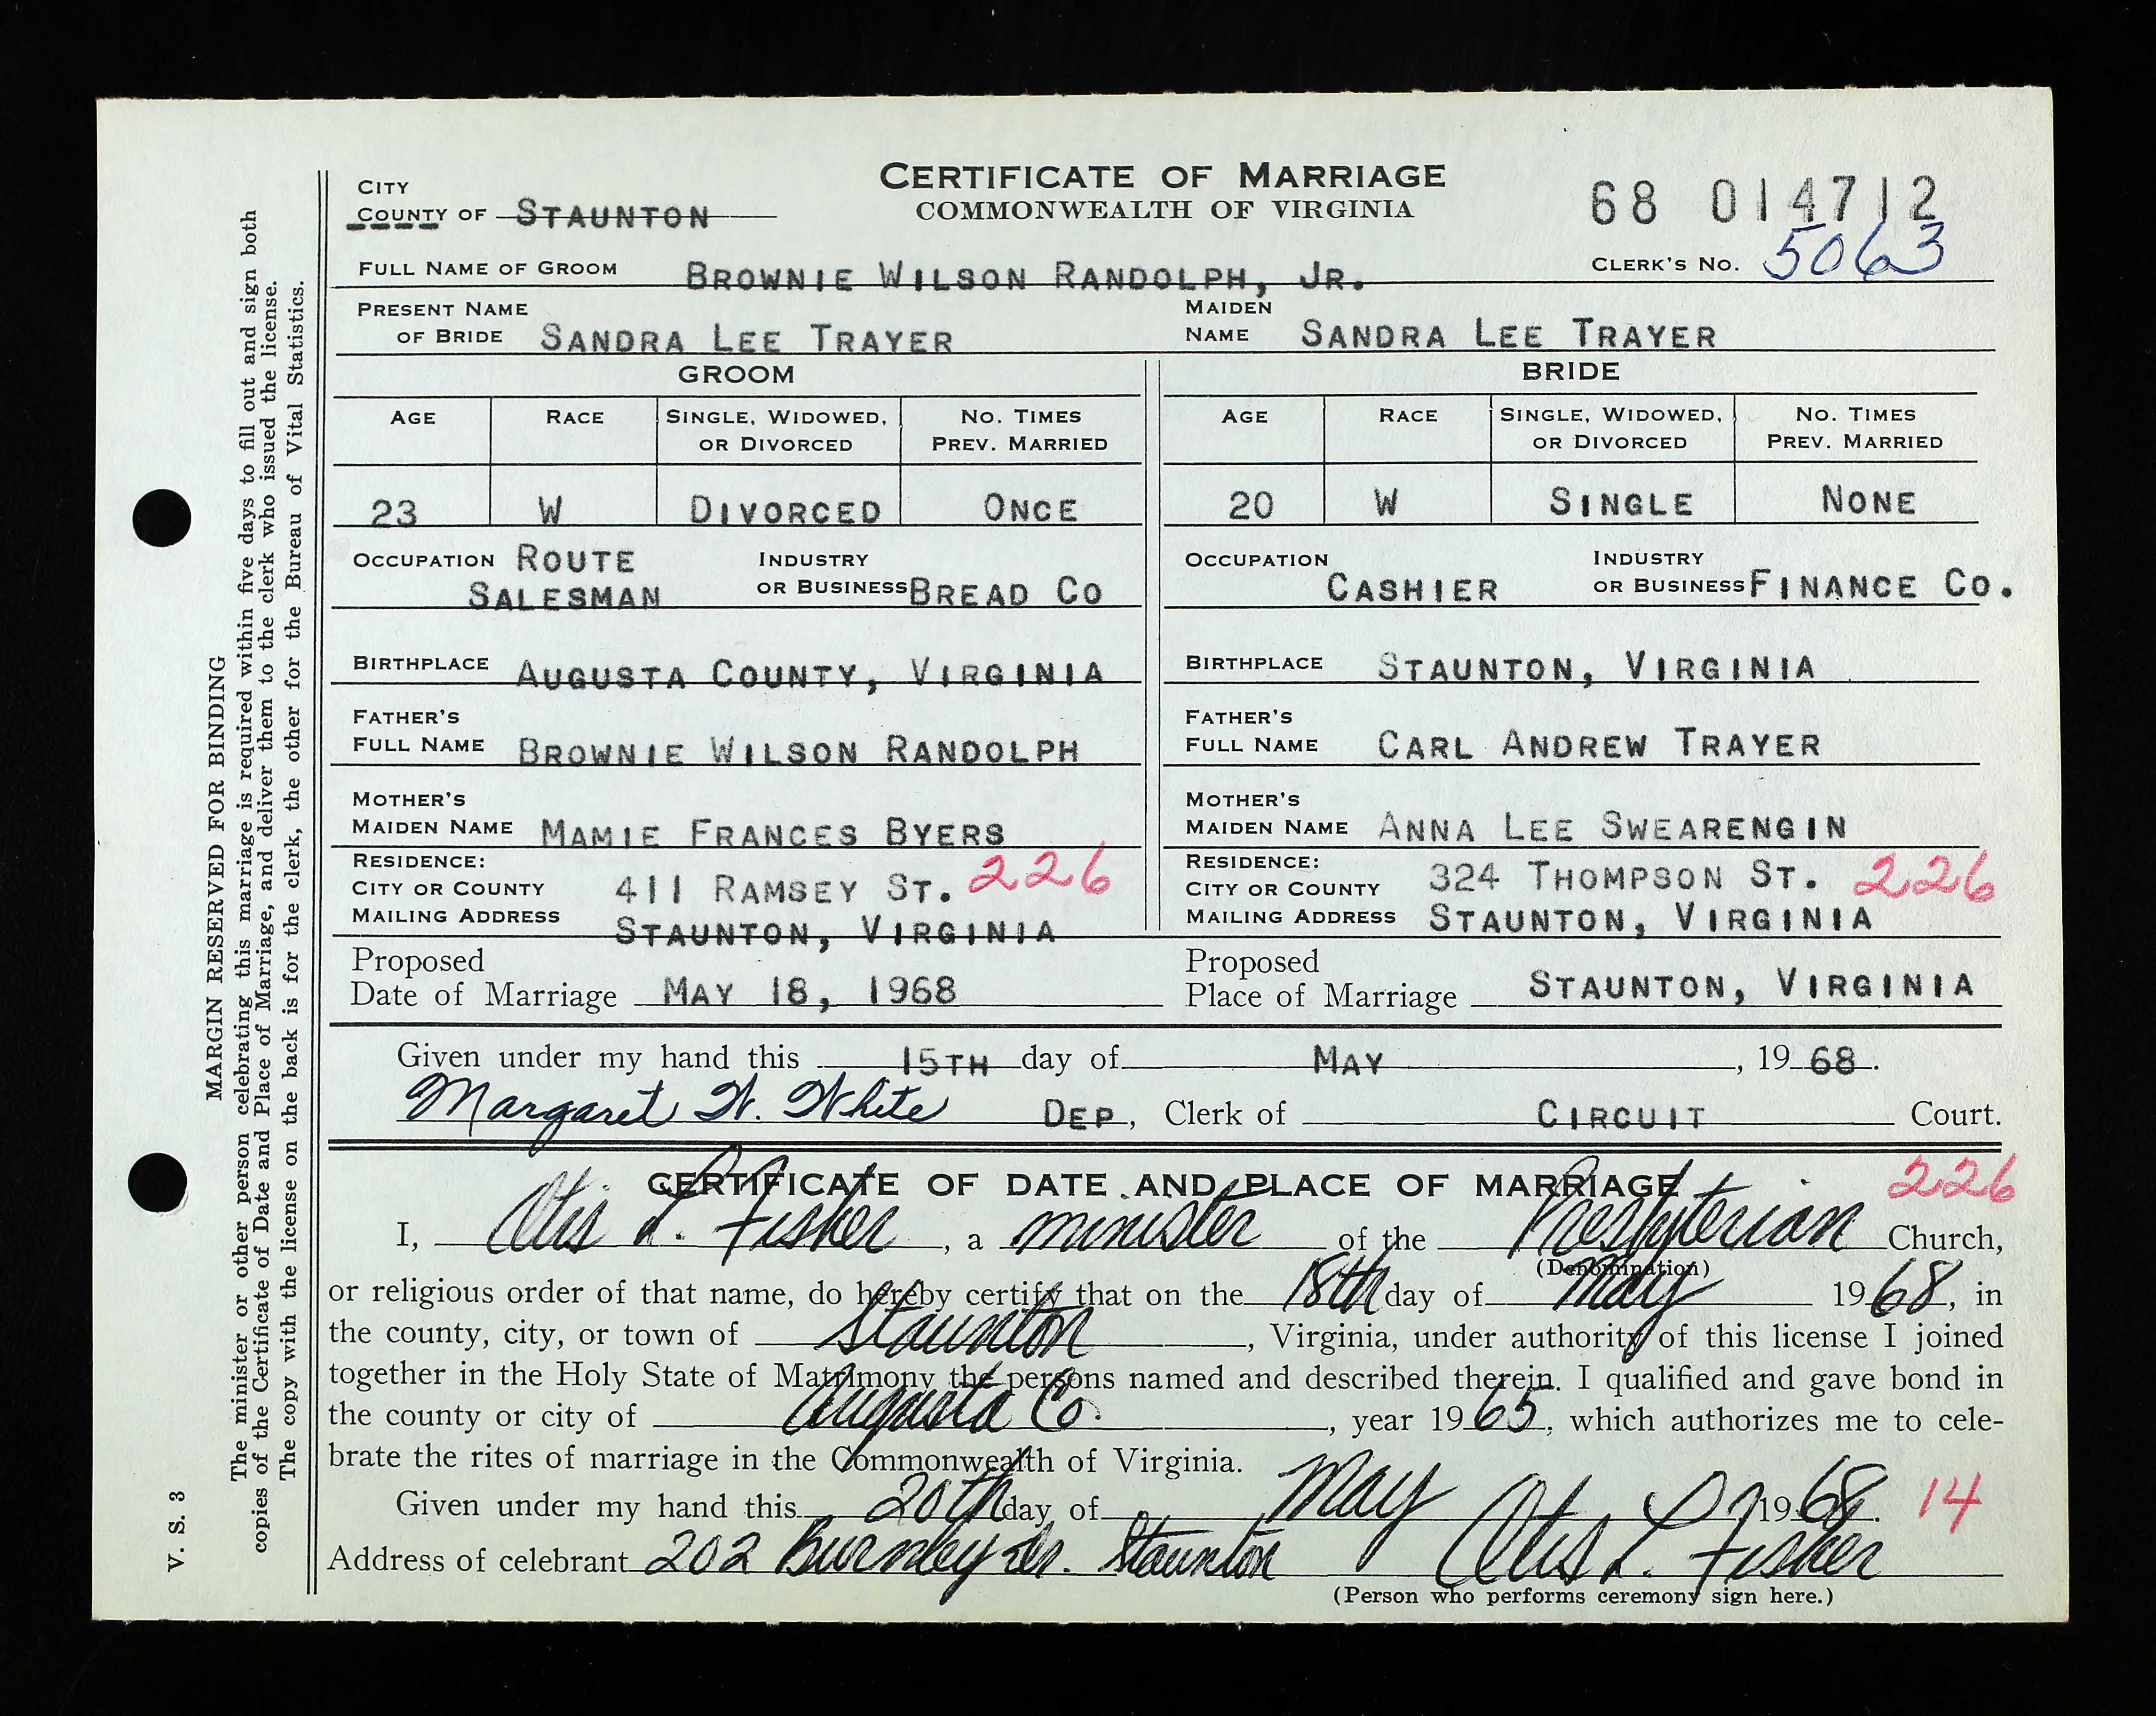 CERTIFICATE OF MARRIAGE
COMMONWEALTH OF VIRGINIA
68 014712
CITY
COUNTY OF STAUNTON
CLERK'S NO. 5063
FULL NAME OF GROOM BROWNIE WILSON RANDOLPH, JR.
PRESENT NAME OF BRIDE SANDRA LEE TRAYER MAIDEN NAME SANDRA LEE TRAYER
GROOM BRIDE
AGE RACE SINGLE, WIDOWED, OR DIVORCED NO. TIMES PREV. MARRIED AGE RACE SINGLE, WIDOWED, OR DIVORCED NO. TIMES PREV. MARRIED
23 W DIVORCED ONCE 20 W SINGLE NONE
OCCUPATION ROUTE SALESMAN INDUSTRY OR BUSINESS BREAD CO OCCUPATION CASHIER INDUSTRY OR BUSINESS FINANCE CO.
BIRTHPLACE AUGUSTA COUNTY, VIRGINIA BIRTHPLACE STAUNTON, VIRGINIA
FATHER'S FULL NAME BROWNIE WILSON RANDOLPH FATHER'S FULL NAME CARL ANDREW TRAYER
MOTHER'S MAIDEN NAME MAMIE FRANCES BYERS MOTHER'S MAIDEN NAME ANNA LEE SWEARENGIN
RESIDENCE: CITY OR COUNTY MAILING ADDRESS 411 RAMSEY ST. 226 STAUNTON, VIRGINIA RESIDENCE: CITY OR COUNTY MAILING ADDRESS 324 THOMPSON ST. 226 STAUNTON, VIRGINIA
Proposed Date of Marriage MAY 18, 1968 Proposed Place of Marriage STAUNTON, VIRGINIA
Given under my hand this 15TH day of MAY, 1968.
Margaret W. White DEP, Clerk of CIRCUIT Court.
CERTIFICATE OF DATE AND PLACE OF MARRIAGE 226
I, Otis L. Fisher, a minister of the Presbyterian Church,
(Denomination)
or religious order of that name, do hereby certify that on the 18th day of May 1968, in
the county, city, or town of Staunton, Virginia, under authority of this license I joined
together in the Holy State of Matrimony the persons named and described therein. I qualified and gave bond in
the county or city of Augusta Co., year 1965, which authorizes me to cele-
brate the rites of marriage in the Commonwealth of Virginia.
Given under my hand this 20th day of May 1968. 14
Address of celebrant 202 Burnley Dr. Staunton Otis L. Fisher
(Person who performs ceremony sign here.)
MARGIN RESERVED FOR BINDING
The minister or other person celebrating this marriage is required within five days to fill out and sign both
copies of the Certificate of Date and Place of Marriage, and deliver them to the clerk who issued the license.
The copy with the license on the back is for the clerk, the other for the Bureau of Vital Statistics.
V. S. 3